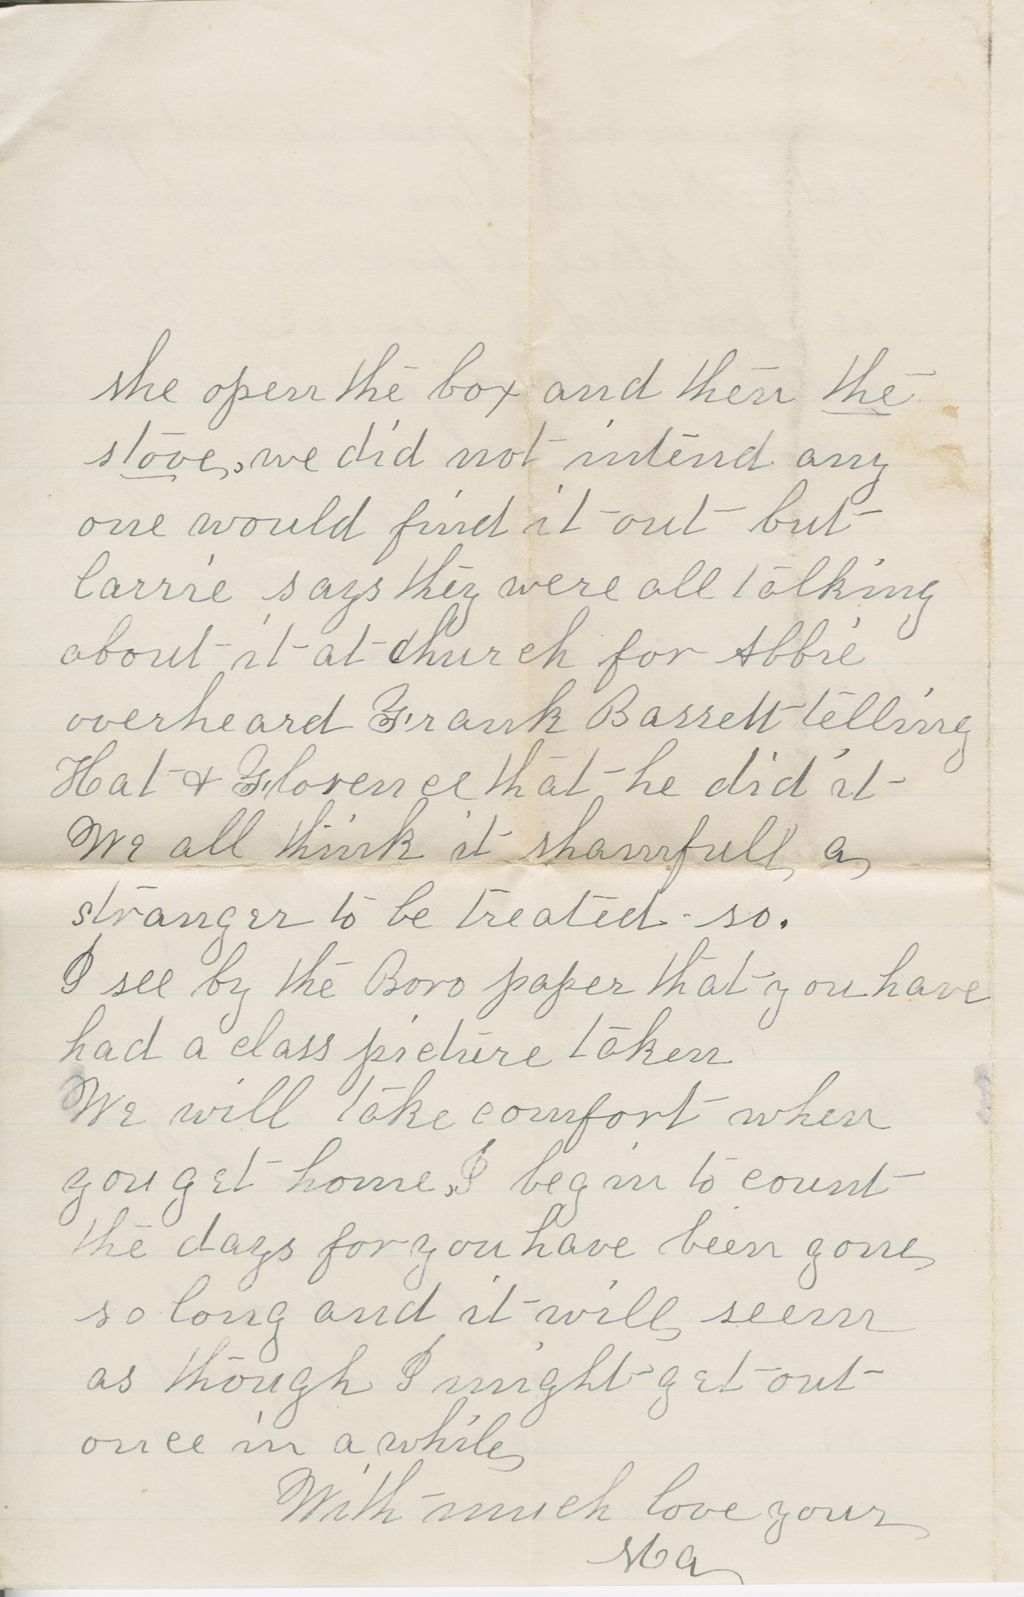 she open the box and then the
stove, we did not intend any
one would find it out but
Carrie says they were all talking
about it at church for Abbie
overheard Frank Bassett telling
Hat & Florence that he did it
We all think it shamfull, a
stranger to be treated so.
I see by the Boro paper that you have
had a class picture taken
We will take comfort when
you get home, I begin to count
the days for you have been gone
so long and it will seem
as though I might get out
once in a while
With much love your
Ma